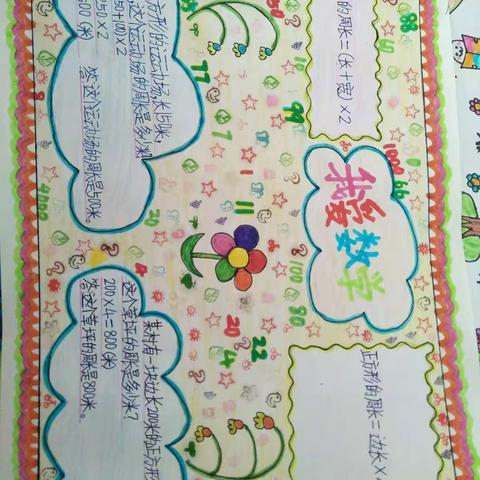 我爱数学
的周长=(长+宽)×2
正方形的周长=边长×
方形的运动场长150米,
这个运动场的周长是多少米?
50+100)×2
50×2
500(米) 答:这个运动场的周长是500米。
某村有一块边长200米的正方形
这个草坪的周长是多少米?
200×4=800(米)
答:这个草坪的周长是800米。
88
99
77
7
1
11
1000
66
100
80
20
4
22